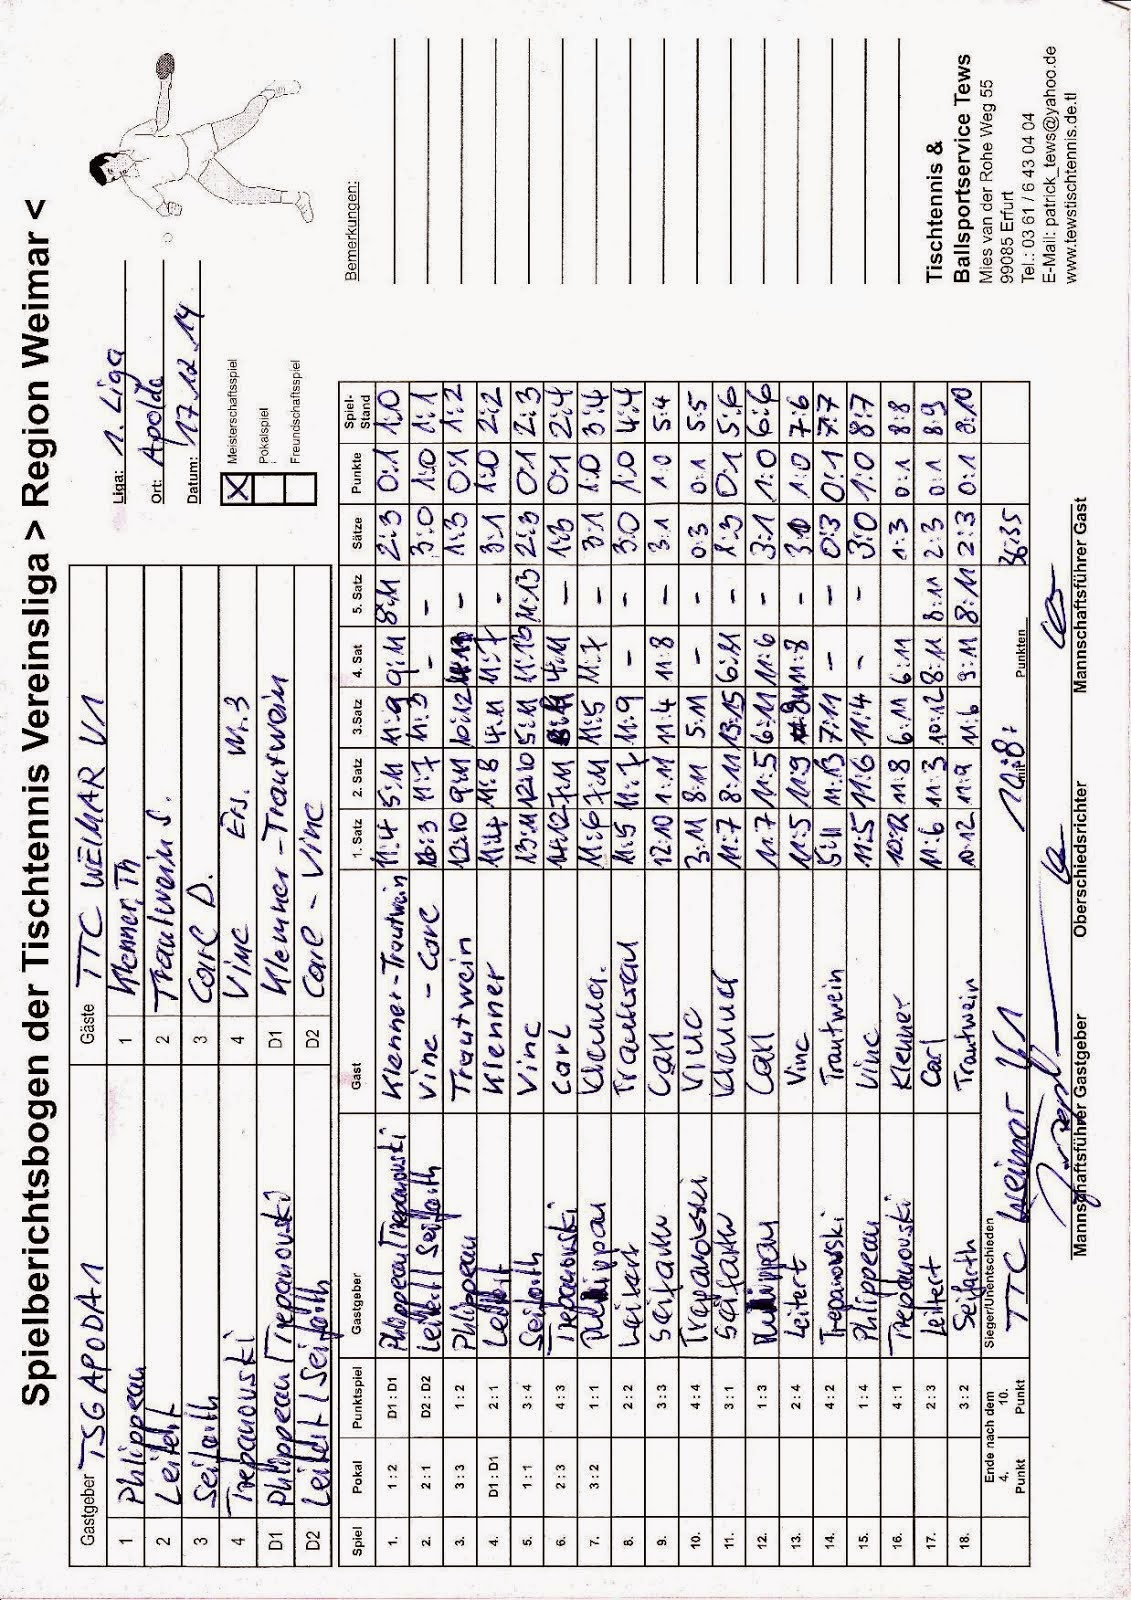 Spielberichtsbogen der Tischtennis Vereinsliga > Region Weimar <
Gastgeber TSG APODA 1 Gäste TTC WEIMAR VI
1 Phlippeau 1 Klenner, Th
2 Leifert 2 Trautwein S.
3 Seifarth 3 Carl D.
4 Trepanowski 4 Vinc Ers. M. 3
D1 Phlippeau/Trepanowski D1 Klenner-Trautwein
D2 Leifert/Seifarth D2 Carl - Vinc
Liga: 1. Liga
Ort: Apolda
Datum: 17.12.14
X Meisterschaftsspiel
Pokalspiel
Freundschaftsspiel
Spiel Pokal Punktspiel Gastgeber Gast 1. Satz 2. Satz 3.Satz 4. Sat 5. Satz Sätze Punkte Spiel-Stand
1. 1 : 2 D1 : D1 Phlippeau/Trepanowski Klenner-Trautwein 11:4 5:11 11:9 9:11 8:11 2:3 0:1 1:0
2. 2 : 1 D2 : D2 Leifert/Seifarth Vinc - Carl 16:3 11:7 11:3 - - 3:0 1:0 1:1
3. 3 : 3 1 : 2 Phlippeau Trautwein 12:10 9:11 10:12 - 1:3 0:1 1:2
4. D1 : D1 2 : 1 Leifert Klenner 11:4 11:8 4:11 11:7 - 3:1 1:0 2:2
5. 1 : 1 3 : 4 Seifarth Vinc 13:11 12:10 5:11 11:13 11:13 2:3 0:1 2:3
6. 2 : 3 4 : 3 Trepanowski Carl 14:12 7:11 4:11 - 1:3 0:1 2:4
7. 3 : 2 1 : 1 Phlippau Klenna. 11:6 7:11 11:5 11:7 - 3:1 1:0 3:4
8. 2 : 2 Leifert Trautwein 11:5 11:7 11:9 - - 3:0 1:0 4:4
9. 3 : 3 Seifarth Carl 12:10 1:11 11:4 11:8 - 3:1 1:0 5:4
10. 4 : 4 Trapanowski Vinc 3:11 8:11 5:11 - - 0:3 0:1 5:5
11. 3 : 1 Seifarth Klenner 11:7 8:11 13:15 6:11 - 1:3 0:1 5:6
12. 1 : 3 Phlippau Carl 11:7 11:5 6:11 11:6 - 3:1 1:0 6:6
13. 2 : 4 Leifert Vinc 11:5 11:9 11:8 - 1:0 7:6
14. 4 : 2 Trepanowski Trautwein 5:11 11:13 7:11 - - 0:3 0:1 7:7
15. 1 : 4 Phlippeau Vinc 11:5 11:6 11:4 - - 3:0 1:0 8:7
16. 4 : 1 Trepanowski Klenner 10:12 11:8 6:11 6:11 1:3 0:1 8:8
17. 2 : 3 Leifert Carl 11:6 11:3 10:12 8:11 8:11 2:3 0:1 8:9
18. 3 : 2 Seifarth Trautwein 10:12 11:9 11:6 9:11 8:11 2:3 0:1 8:10
Ende nach dem
4. Punkt 10. Punkt
Sieger/Unentschieden TTC Weimar VI mit 10:8 Punkten 36:35
Mannschaftsführer Gastgeber Oberschiedsrichter Mannschaftsführer Gast
Bemerkungen:
Tischtennis &
Ballsportservice Tews
Mies van der Rohe Weg 55
99085 Erfurt
Tel.: 03 61 / 6 43 04 04
E-Mail: patrick_tews@yahoo.de
www.tewstischtennis.de.tl